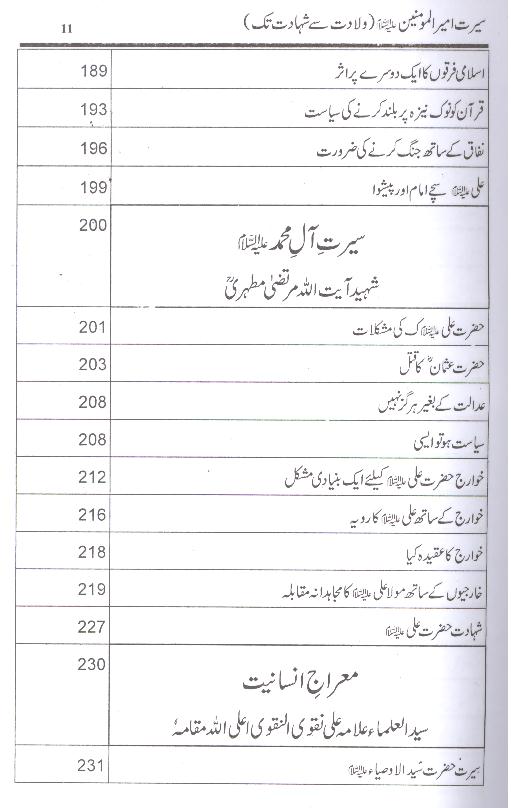 سیرت امیرالمومنین علیہ السلام (ولادت سے شہادت تک) 11
اسلامی فرقوں کا ایک دوسرے پر اثر 189
قرآن کو نوک نیزہ پر بلند کرنے کی سیاست 193
نفاق کے ساتھ جنگ کرنے کی ضرورت 196
علی علیہ السلام سچے امام اور پیشوا 199
سیرتِ آلِ محمد علیہم السلام 200
شہید آیت اللہ مرتضیٰ مطہریؒ
حضرت علی علیہ السلام ک کی مشکلات 201
حضرت عثمانؓ کا قتل 203
عدالت کے بغیر ہرگز نہیں 208
سیاست ہو تو ایسی 208
خوارج حضرت علی علیہ السلام کیلئے ایک بنیادی مشکل 212
خوارج کے ساتھ علی علیہ السلام کا رویہ 216
خوارج کا عقیدہ کیا 218
خارجیوں کے ساتھ مولا علی علیہ السلام کا مجاہدانہ مقابلہ 219
شہادت حضرت علی علیہ السلام 227
معراجِ انسانیت 230
سید العلماء علامہ علی نقوی النقوی اعلی اللہ مقامہٗ
سیرت حضرت سید الاوصیاء علیہ السلام 231